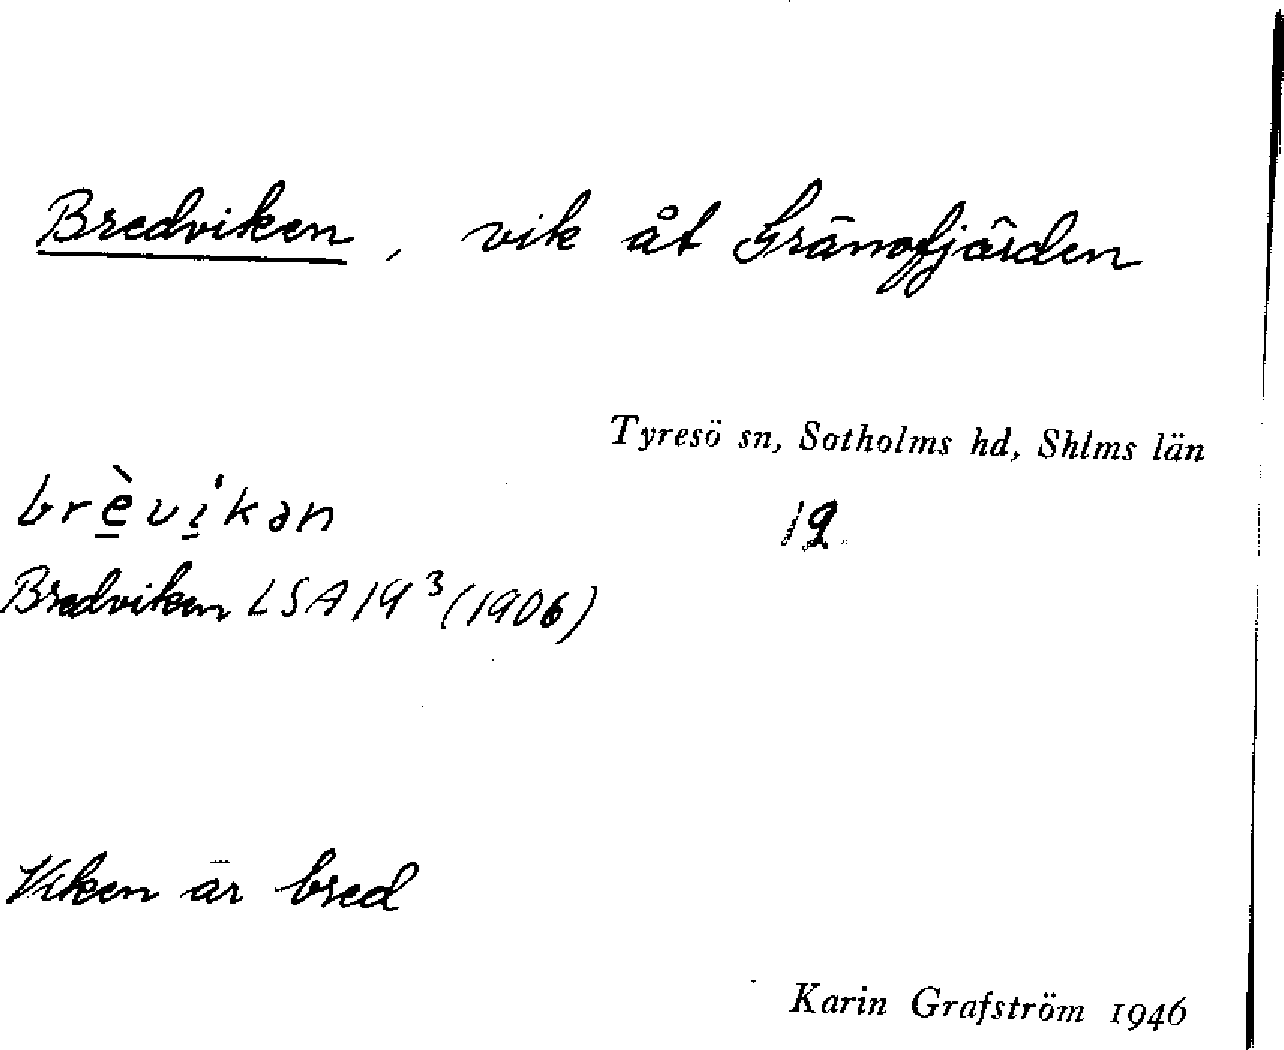 Bredviken, vik åt Gränsfjärden
Tyresö sn, Sotholms hd, Shlms län
brèvi'kən
19
Bredviken LSA 19³ (1906)
Viken är bred
Karin Grafström 1946